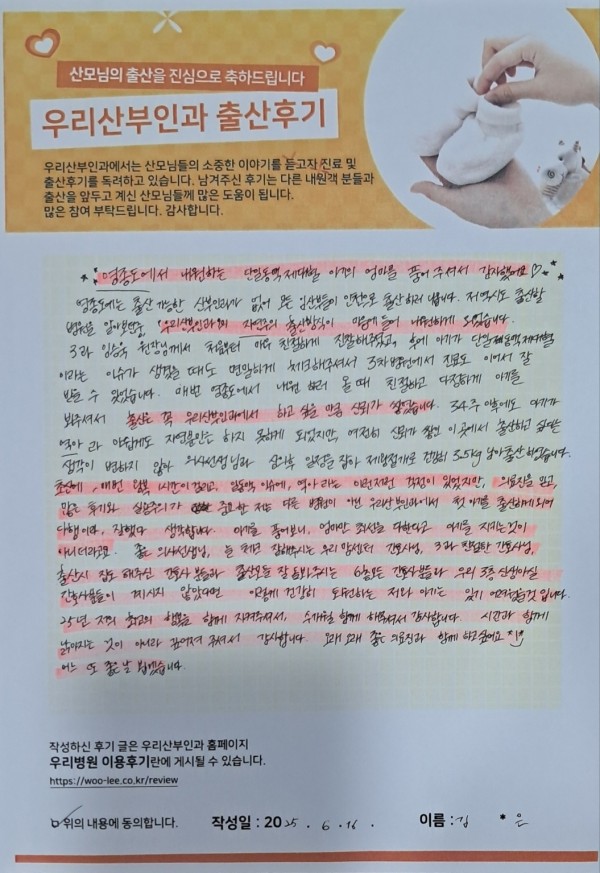 산모님의 출산을 진심으로 축하드립니다
우리산부인과 출산후기
우리산부인과에서는 산모님들의 소중한 이야기를 듣고자 진료 및
출산후기를 독려하고 있습니다. 남겨주신 후기는 다른 내원객 분들과
출산을 앞두고 계신 산모님들께 많은 도움이 됩니다.
많은 참여 부탁드립니다. 감사합니다.
영종도에서 내원하는 단일동맥 제대혈 아기의 엄마를 품어 주셔서 감사했어요♡
영종도에는 출산 가능한 산부인과가 없어 모든 임산부들이 인천으로 출산하러 나옵니다. 저 역시도 출산할
병원을 알아보던중 '우리산부인과'의 자연주의 출산방식이 마음에 들어 내원하게 되었습니다.
3과 원장님께서 처음부터 아주 친절하게 진찰해주셨고, 후에 아기가 단일동맥 제대혈
이라는 이슈가 생겼을 때도 면밀하게 체크해주셔서 3차병원에서 진료도 이어서 잘
받을 수 있었습니다. 매번 영종도에서 내원 하러 올 때 친절하고 다정하게 아기를
봐주셔서 출산은 꼭 우리산부인과에서 하고 싶을 만큼 신뢰가 쌓였습니다. 34주 이후에도 아기가
역아라 아쉽게도 자연분만은 하지 못하게 되었지만, 여전히 신뢰가 쌓인 이곳에서 출산하고 싶다는
생각이 변하지 않아 의사선생님과 상의후 일정을 잡아 제왕절개로 건강히 3.5kg 남아 출산하였습니다.
초산에, 매번 왕복 1시간이 걸리고, 단일동맥 이슈에, 역아 라는 이런저런 걱정이 있었지만, 의료진을 믿고,
많은 후기와 실력주의가 중요한 저는 다른 병원이 아닌 우리산부인과에서 첫 아기를 출산하게 되어
다행이다, 잘했다 생각합니다. 아기를 품어보니, 엄마만 최선을 다한다고 아기를 지키는것이
아니더라고요. 좋은 의사선생님, 늘 체크 잘해주시는 간호사님, 3과 진료실 간호사님,
출산시 잘 도와 해주신 간호사 분들과 출산후를 잘 돌봐주시는 6층 모든 간호사분들과 우리 3층 신생아실
간호사분들이 계시지 않았다면 이렇게 건강히 도착하는 저와 아기는 있기 어려웠을것 입니다.
25년 저의 최고의 행복을 함께 지켜주셔서, 수개월 함께 해주셔서 감사합니다. 시간과 함께
낡아지는 것이 아니라 깊어져 주셔서 감사합니다 오래오래 좋은 의료진과 함께 하고싶어요
어느 또 좋은 날 뵙겠습니다.
작성하신 후기 글은 우리산부인과 홈페이지
우리병원 이용후기란에 게시될 수 있습니다.
https://woo-lee.co.kr/review
위의 내용에 동의합니다. 작성일 : 2025. 6. 16. 이름 : 김 * 은